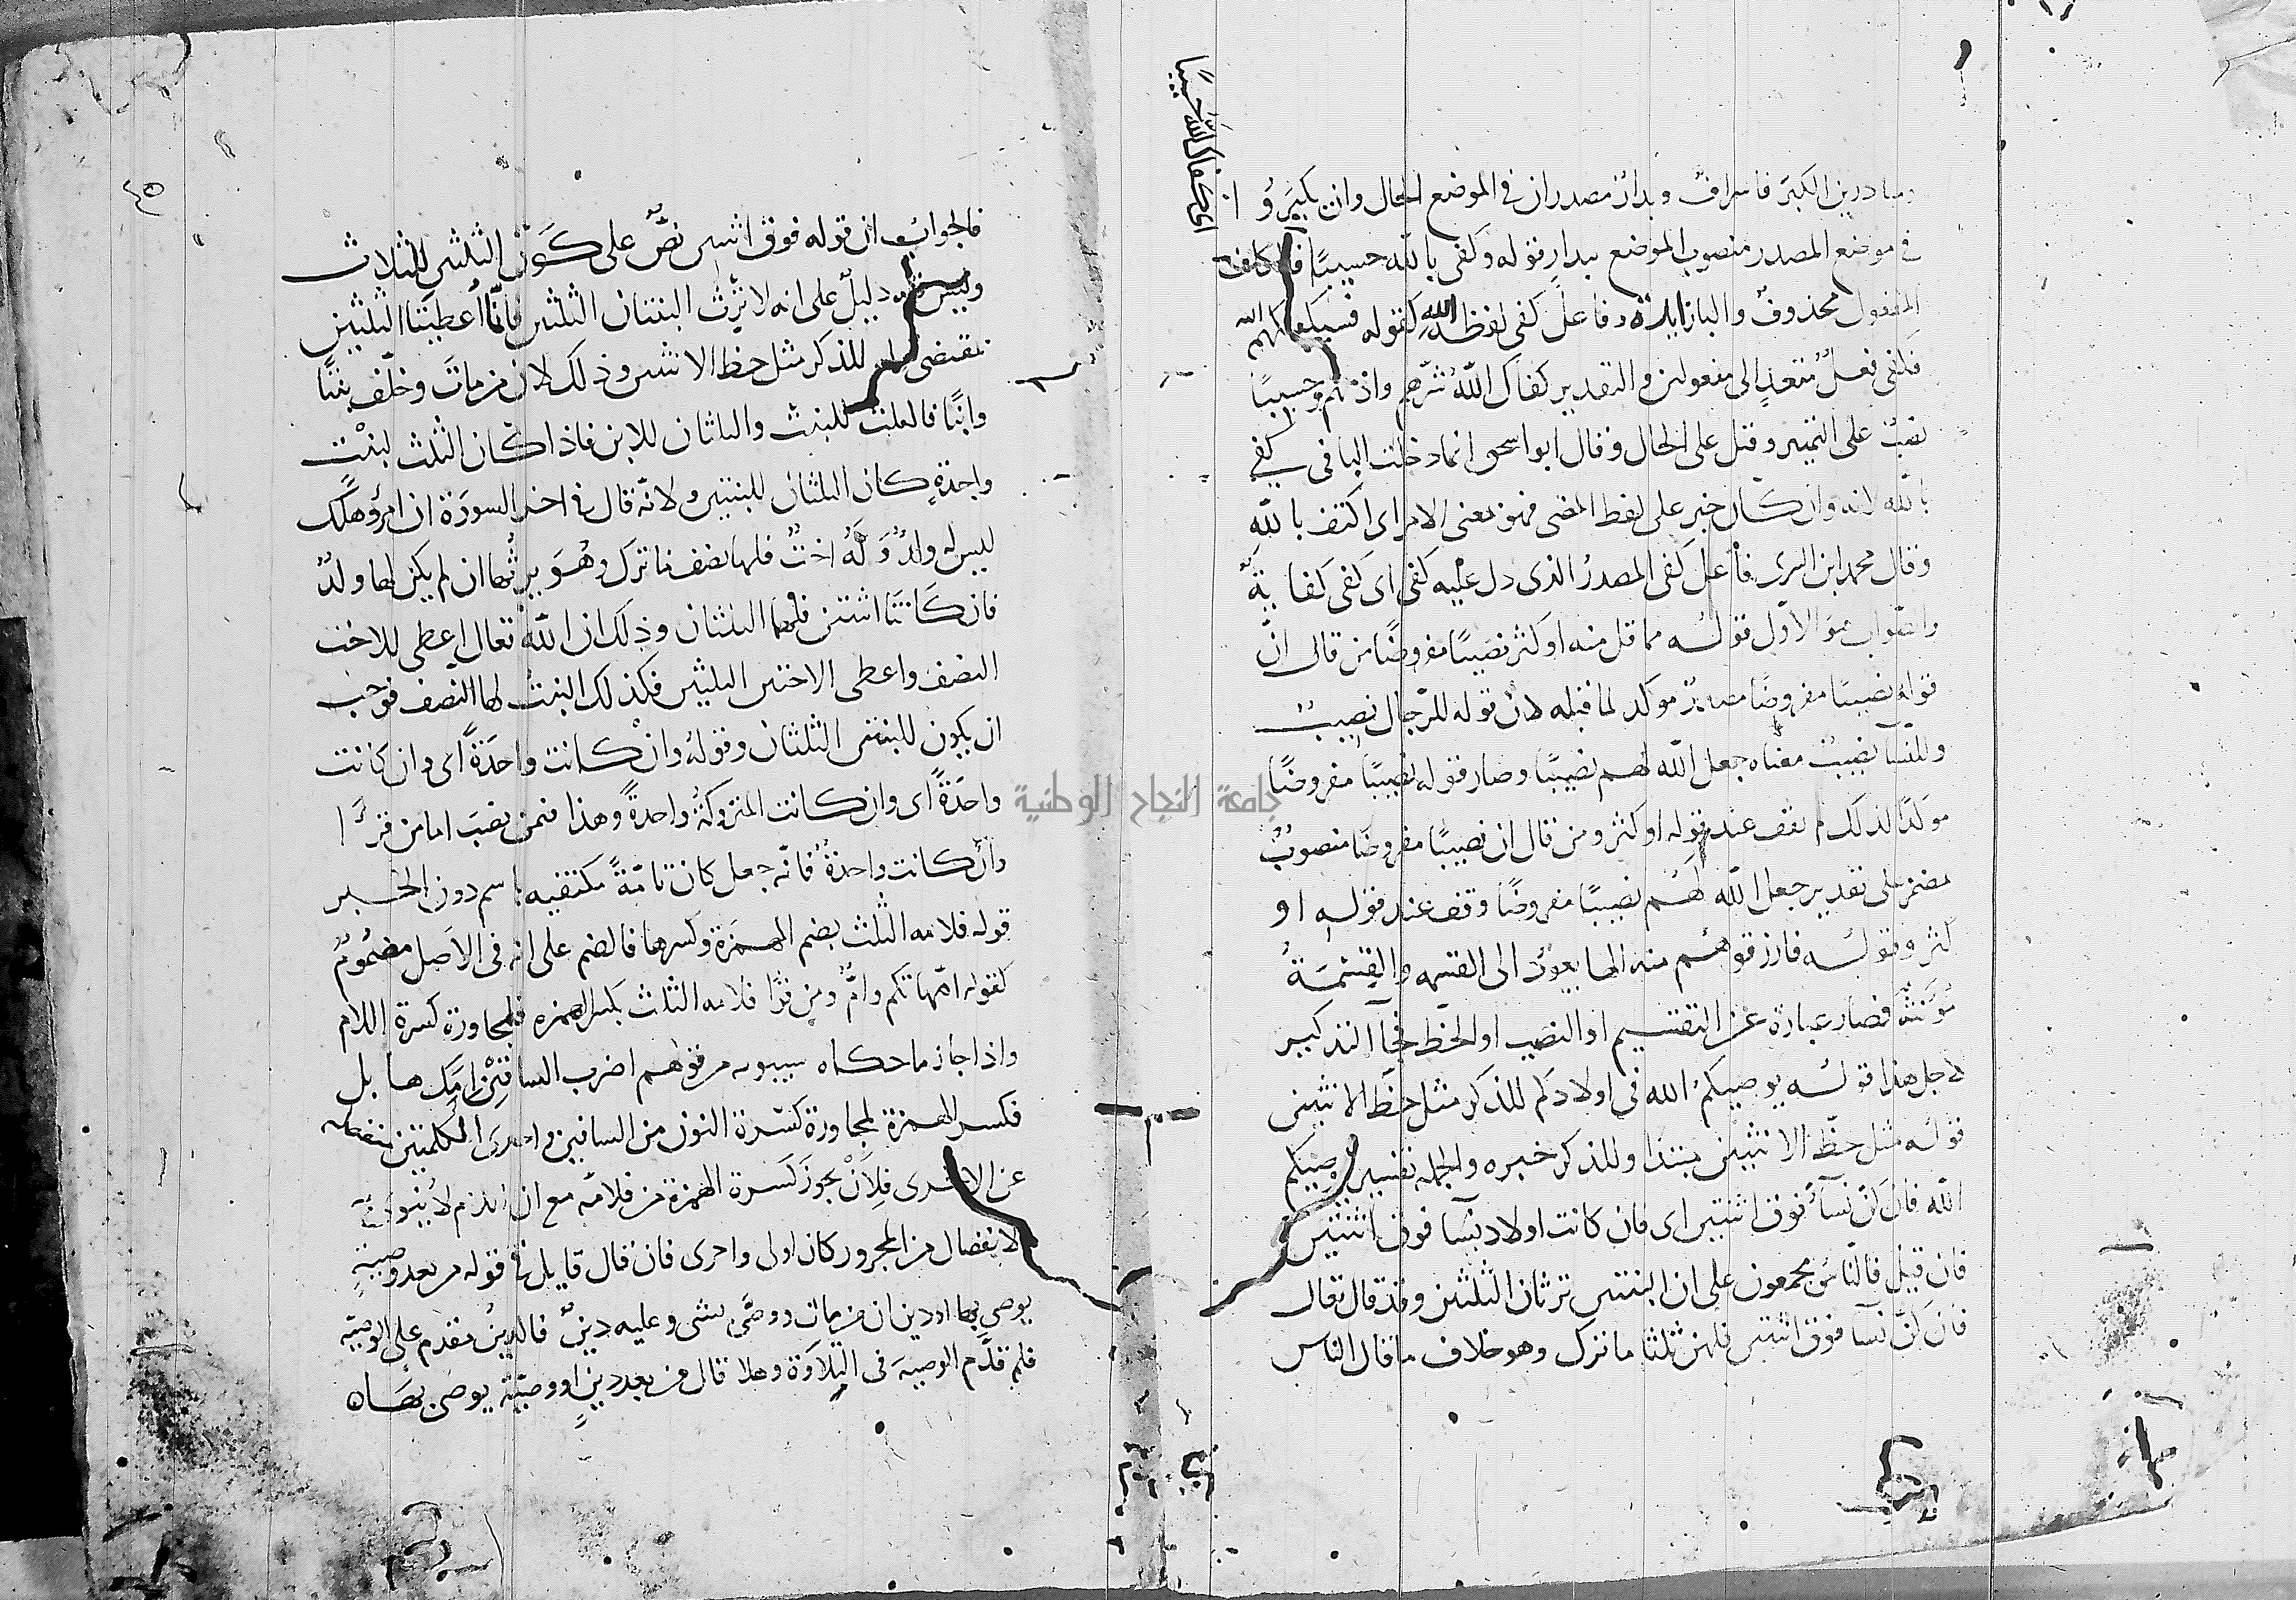 ومبادرين الكبر فاسراف وبدار مصدران في الموضع الحال وان يكبرو ا
في موضع المصدر منصوب الموضع ببدار قوله وكفى بالله حسيبا
اي كفاك الله حسيبا
المفعول محذوف والبا زايدة وفاعل كفى لفظ الله كقوله فسيكفيكهم الله
فكفى فعل متعد الى مفعولين والتقدير كفاك الله شرهم حسيبا
نصب على التميز وقيل على الحال وقال ابو اسحق انما دخلت البا في كفى
بالله لانه وان كان خبر على لفظ المضى فهو بمعنى الامر اى اكتف بالله
وقال محمد ابن السرى فاعل كفى المصدر الذى دل عليه كفى اى كفى كفاية
والصواب هو الاول قوله مما قل منه او كثر نصيبا مفروضا من قال ان
قوله نصيبا مفروضا مصدر موكد لما قبله لان قوله للرجال نصيب
وللنسآ نصيب معناه جعل الله لهم نصيبا وصار قوله نصيبا مفروضا
موكدا لذلك لم يقف عند قوله او كثر ومن قال ان نصيبا مفروضا منصوب
بمضمر على تقدير جعل الله لهم نصيبا مفروضا وقف عند قوله او
كثر وقوله فارزقوهم منه الها يعود الى القسمه والقسمة
مونثة فصار عبارة عن التقسيم او النصيب او الحظ فجآ التذكير
لاجل هذا قوله يوصيكم الله في اولادكم للذكر مثل حظ الانثيين
قوله مثل حظ الانثيين مبتدا وللذكر خبره والجمله تفسير يوصيكم
الله فان كن نسآ فوق اثنتين اى فان كانت اولاد نسآ فوق اثنتين
فان قيل فالناس مجمعون على ان البنتين ترثان الثلثين وقد قال تعالى
فان كن نسآ فوق اثنتين فلهن ثلثا ما ترك وهو خلاف ما قال الناس
٤٥
فالجواب ان قوله فوق اثنتين نص على كون الثلثين للثلاث
وليس فيه دليل على انه لا ترث البنتان الثلثين فانما اعطيتا الثلثين
بمقتضى للذكر مثل حظ الانثيين وذلك لان من مات وخلف بنتا
وابنا فالثلث للبنت والثلثان للابن فاذا كان الثلث لبنت
واحدة كان الثلثان للبنتين ولانه قال في اخر السورة ان امرؤ هلك
ليس له ولد وله اخت فلها نصف ما ترك وهو يرثها ان لم يكن لها ولد
فان كانتا اثنتين فلهما الثلثان وذلك ان الله تعالى اعطى للاخت
النصف واعطى الاختين الثلثين فكذلك البنت لها النصف فوجب
ان يكون للبنتين الثلثان وقوله وان كانت واحدة اى وان كانت
واحدة اى وان كانت المتروكة واحدة وهذا فيمن نصب اما من قرا
وان كانت واحدة فانه جعل كان تامة مكتفيه باسم دون الخبر
قوله فلامه الثلث بضم الهمزة وكسرها فالضم على انه في الاصل مضموم
كقوله امهاتكم وام ومن قرا فلامه الثلث بكسر الهمزه فلمجاورة كسرة اللام
واذا جاز ما حكاه سيبويه من قولهم اضرب الساقين امك هابل
فكسر الهمزة لمجاورة كسرة النون من الساقين واحدى الكلمتين منفصله
عن الاخرى فلان يجوز كسرة الهمزة من فلامه مع ان اللام لا
الانفصال من المجرور كان اولى واحرى فان قال قايل في قوله من بعد وصية
يوصى بها او دين ان من مات ووصى بشى وعليه دين فالدين مقدم على الوصيه
فلم قدم الوصية في التلاوة وهلا قال من بعد دين او وصية يوصى بها ه
جامعة النجاح الوطنية